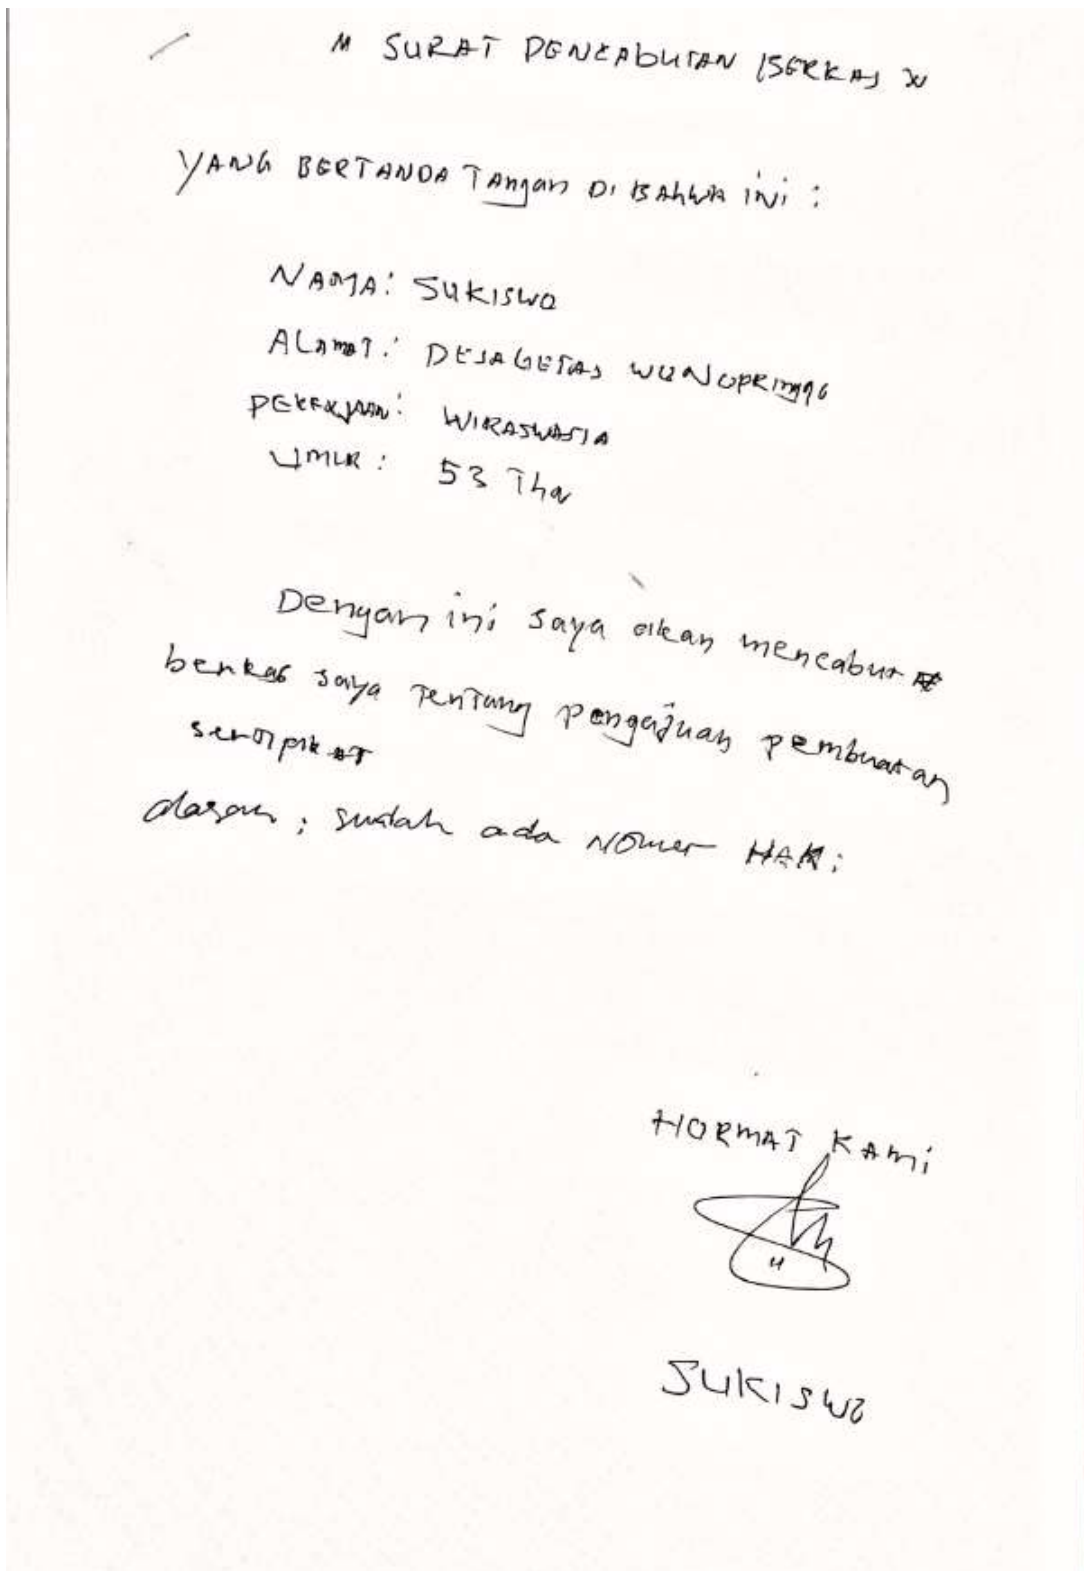 " SURAT PENCABUTAN BERKAS "
YANG BERTANDA TANgan DI BAHWA iNi :
NAMA: SUKISWO
ALAmAT: DESA GETAS WONOPRInggo
PEKERJAAN: WIRASWASTA
UMUR: 53 Thn
Dengan ini saya akan mencabut
berkas saya Tentang pengajuan pembuatan
seropikat
alasan: sudah ada Nomer HAK:
HORMAT KAmi
SUKISWO